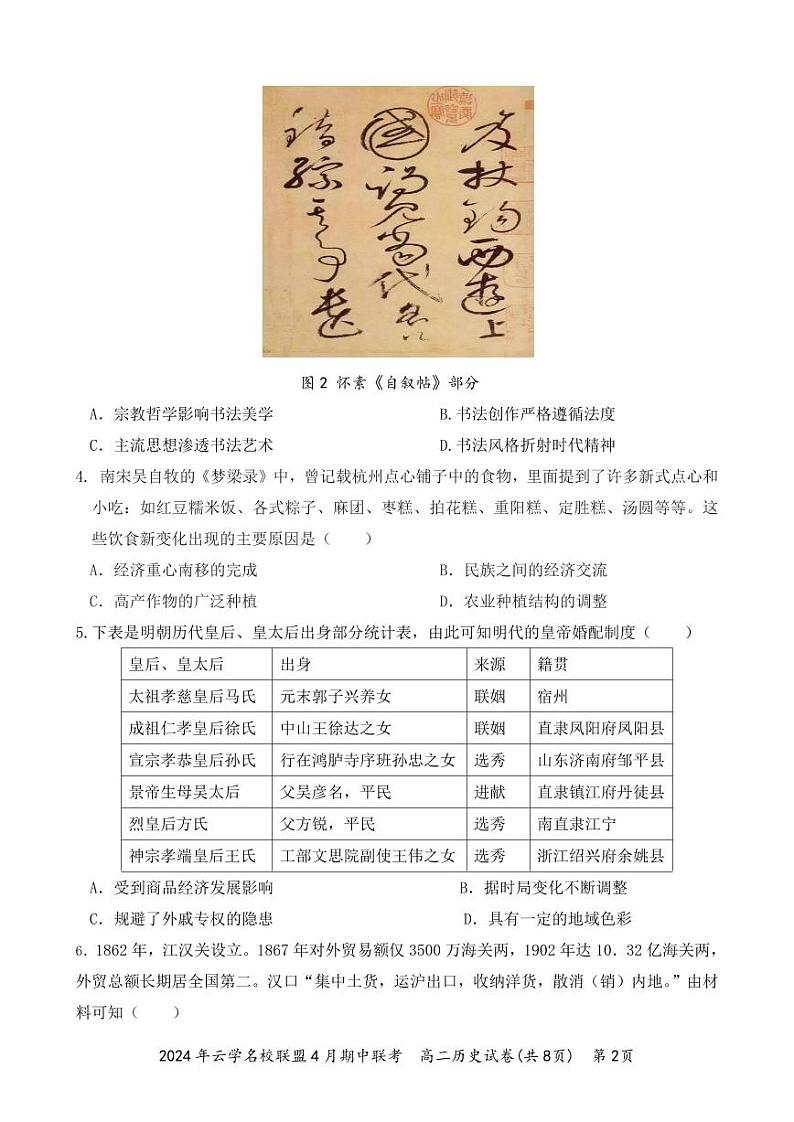 笈杖錫西遊上
國謁見當代名公
錯綜其事遺
图2 怀素《自叙帖》部分
A. 宗教哲学影响书法美学 B.书法创作严格遵循法度
C. 主流思想渗透书法艺术 D.书法风格折射时代精神
4. 南宋吴自牧的《梦梁录》中，曾记载杭州点心铺子中的食物，里面提到了许多新式点心和
小吃：如红豆糯米饭、各式粽子、麻团、枣糕、拍花糕、重阳糕、定胜糕、汤圆等等。这
些饮食新变化出现的主要原因是（ ）
A. 经济重心南移的完成 B. 民族之间的经济交流
C. 高产作物的广泛种植 D. 农业种植结构的调整
5.下表是明朝历代皇后、皇太后出身部分统计表，由此可知明代的皇帝婚配制度（ ）
皇后、皇太后 出身 来源 籍贯
太祖孝慈皇后马氏 元末郭子兴养女 联姻 宿州
成祖仁孝皇后徐氏 中山王徐达之女 联姻 直隶凤阳府凤阳县
宣宗孝恭皇后孙氏 行在鸿胪寺序班孙忠之女 选秀 山东济南府邹平县
景帝生母吴太后 父吴彦名，平民 进献 直隶镇江府丹徒县
烈皇后方氏 父方锐，平民 选秀 南直隶江宁
神宗孝端皇后王氏 工部文思院副使王伟之女 选秀 浙江绍兴府余姚县
A. 受到商品经济发展影响 B. 据时局变化不断调整
C. 规避了外戚专权的隐患 D. 具有一定的地域色彩
6. 1862年，江汉关设立。1867年对外贸易额仅3500万海关两，1902年达10．32亿海关两，
外贸总额长期居全国第二。汉口“集中土货，运沪出口，收纳洋货，散消（销）内地。”由材
料可知（ ）
2024年云学名校联盟4月期中联考 高二历史试卷(共8页) 第2页